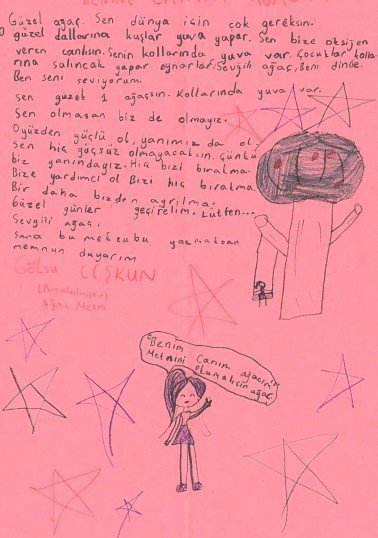 Güzel ağaç. Sen dünya için çok gereksin.
güzel dallarına kuşlar yuva yapar. Sen bize oksijen
veren canlısın. Senin kollarında yuva var. Çocuklar kolla
rına salıncak yapar oynarlar. Sevgili ağaç, Beni dinle.
Ben seni seviyorum.
Sen güzel 1 ağaçsın. Kollarında yuva var.
Sen olmasan biz de olmayız.
Oyüzden güçlü ol, yanımız da ol.
Sen hiç güçsüz olmayacaksın. Çünkü
biz yanındayız. Hiç bizi bıratma.
Bize yardımcı ol Bizi hiç bıratma.
Bir daha bizden ayrılma.
Güzel günler geçirelim. Lütfen...
Sevgili ağaç,
sana bu mektubu yazmaktan
memnun duyarım
Gölsu COŞKUN
Ağaç Metni
Benim Canım ağacım
Metnini Okumalısın ağaç